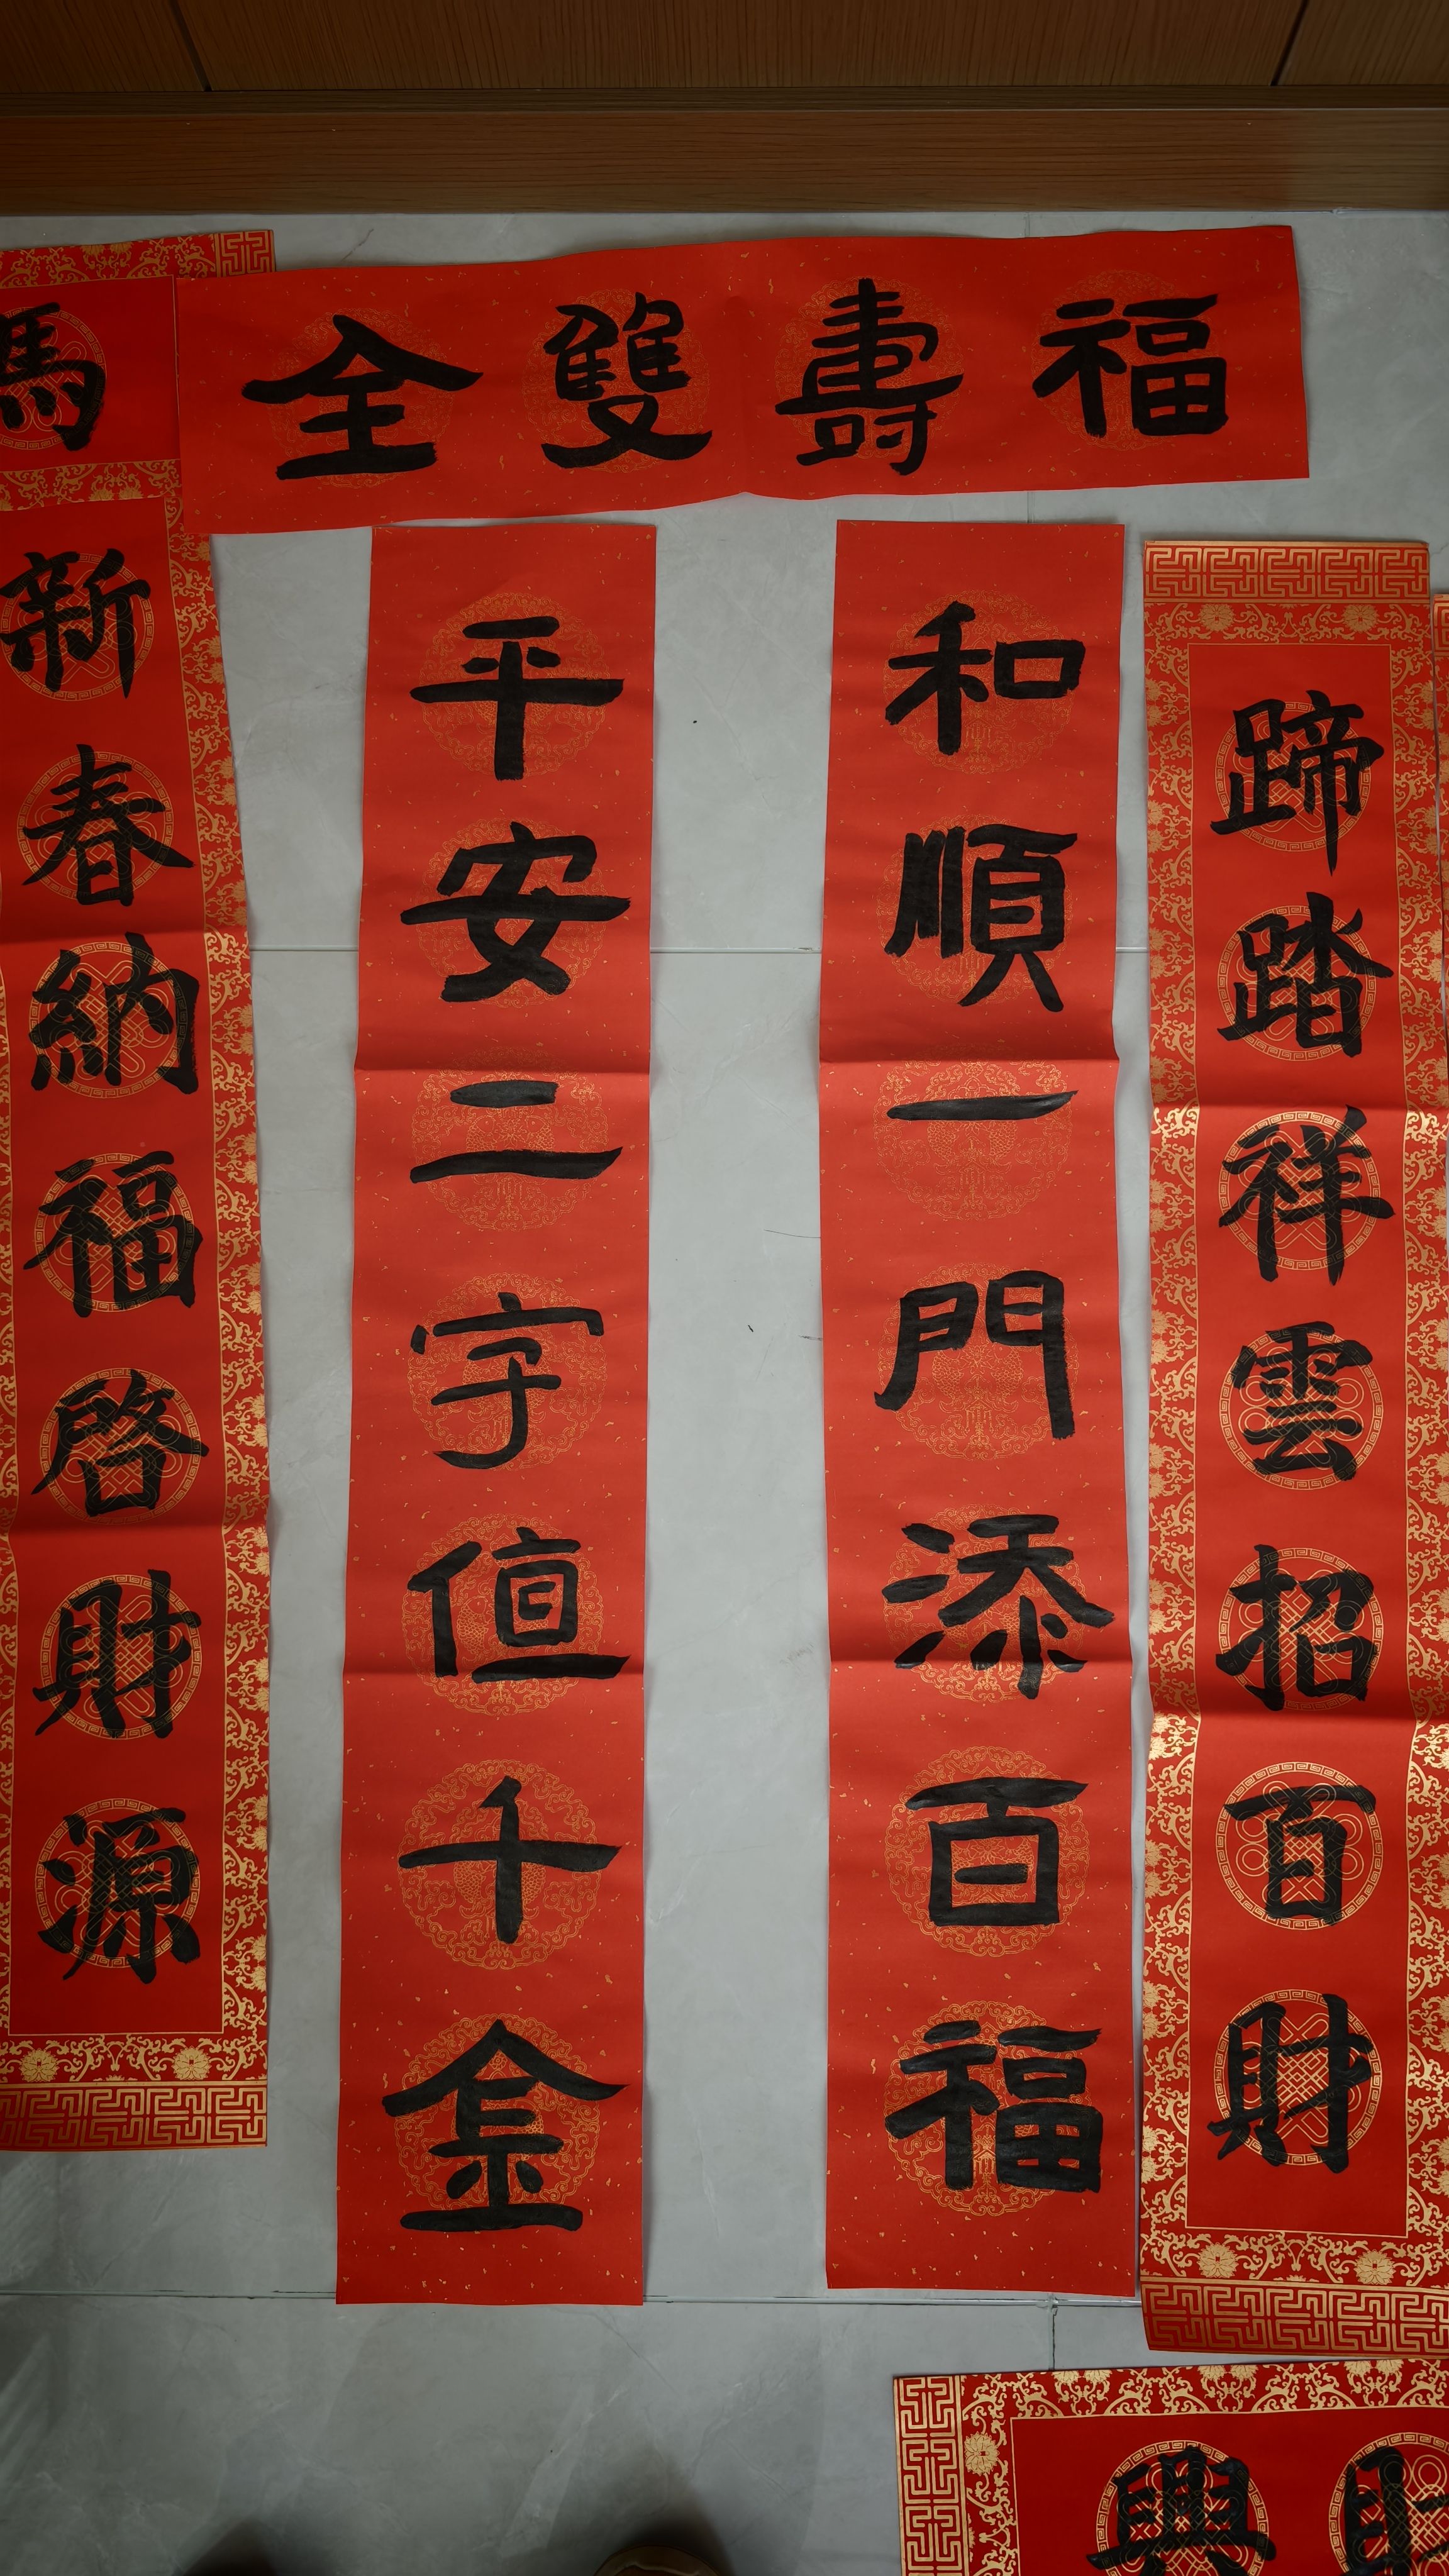 福壽雙全
和順一門添百福
平安二字值千金
蹄踏祥雲招百財
新春納福啓財源
馬
興